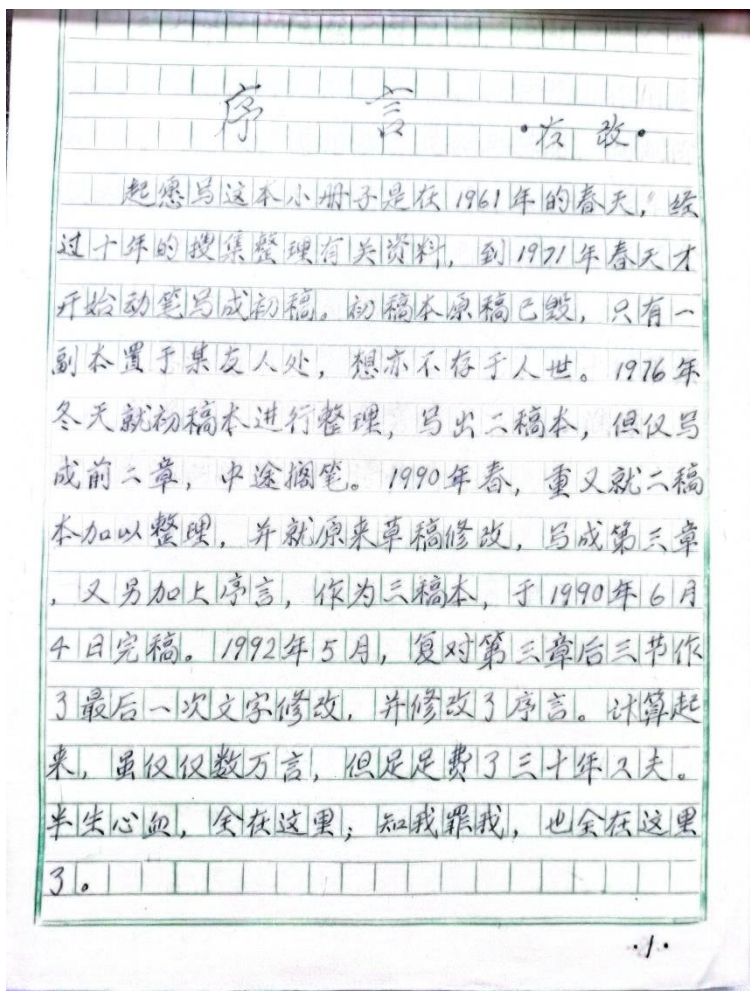 序 言
·右改·
起愿写这本小册子是在1961年的春天,经
过十年的搜集整理有关资料,到1971年春天才
开始动笔写成初稿。初稿本原稿已毁,只有一
副本置于某友人处,想亦不存于人世。1976年
冬天就初稿本进行整理,写出二稿本,但仅写
成前二章,中途搁笔。1990年春,重又就二稿
本加以整理,并就原来草稿修改,写成第三章
,又另加上序言,作为三稿本,于1990年6月
4日完稿。1992年5月,复对第三章后三节作
了最后一次文字修改,并修改了序言。计算起
来,虽仅仅数万言,但足足费了三十年工夫。
半生心血,全在这里;知我罪我,也全在这里
了。
·1·